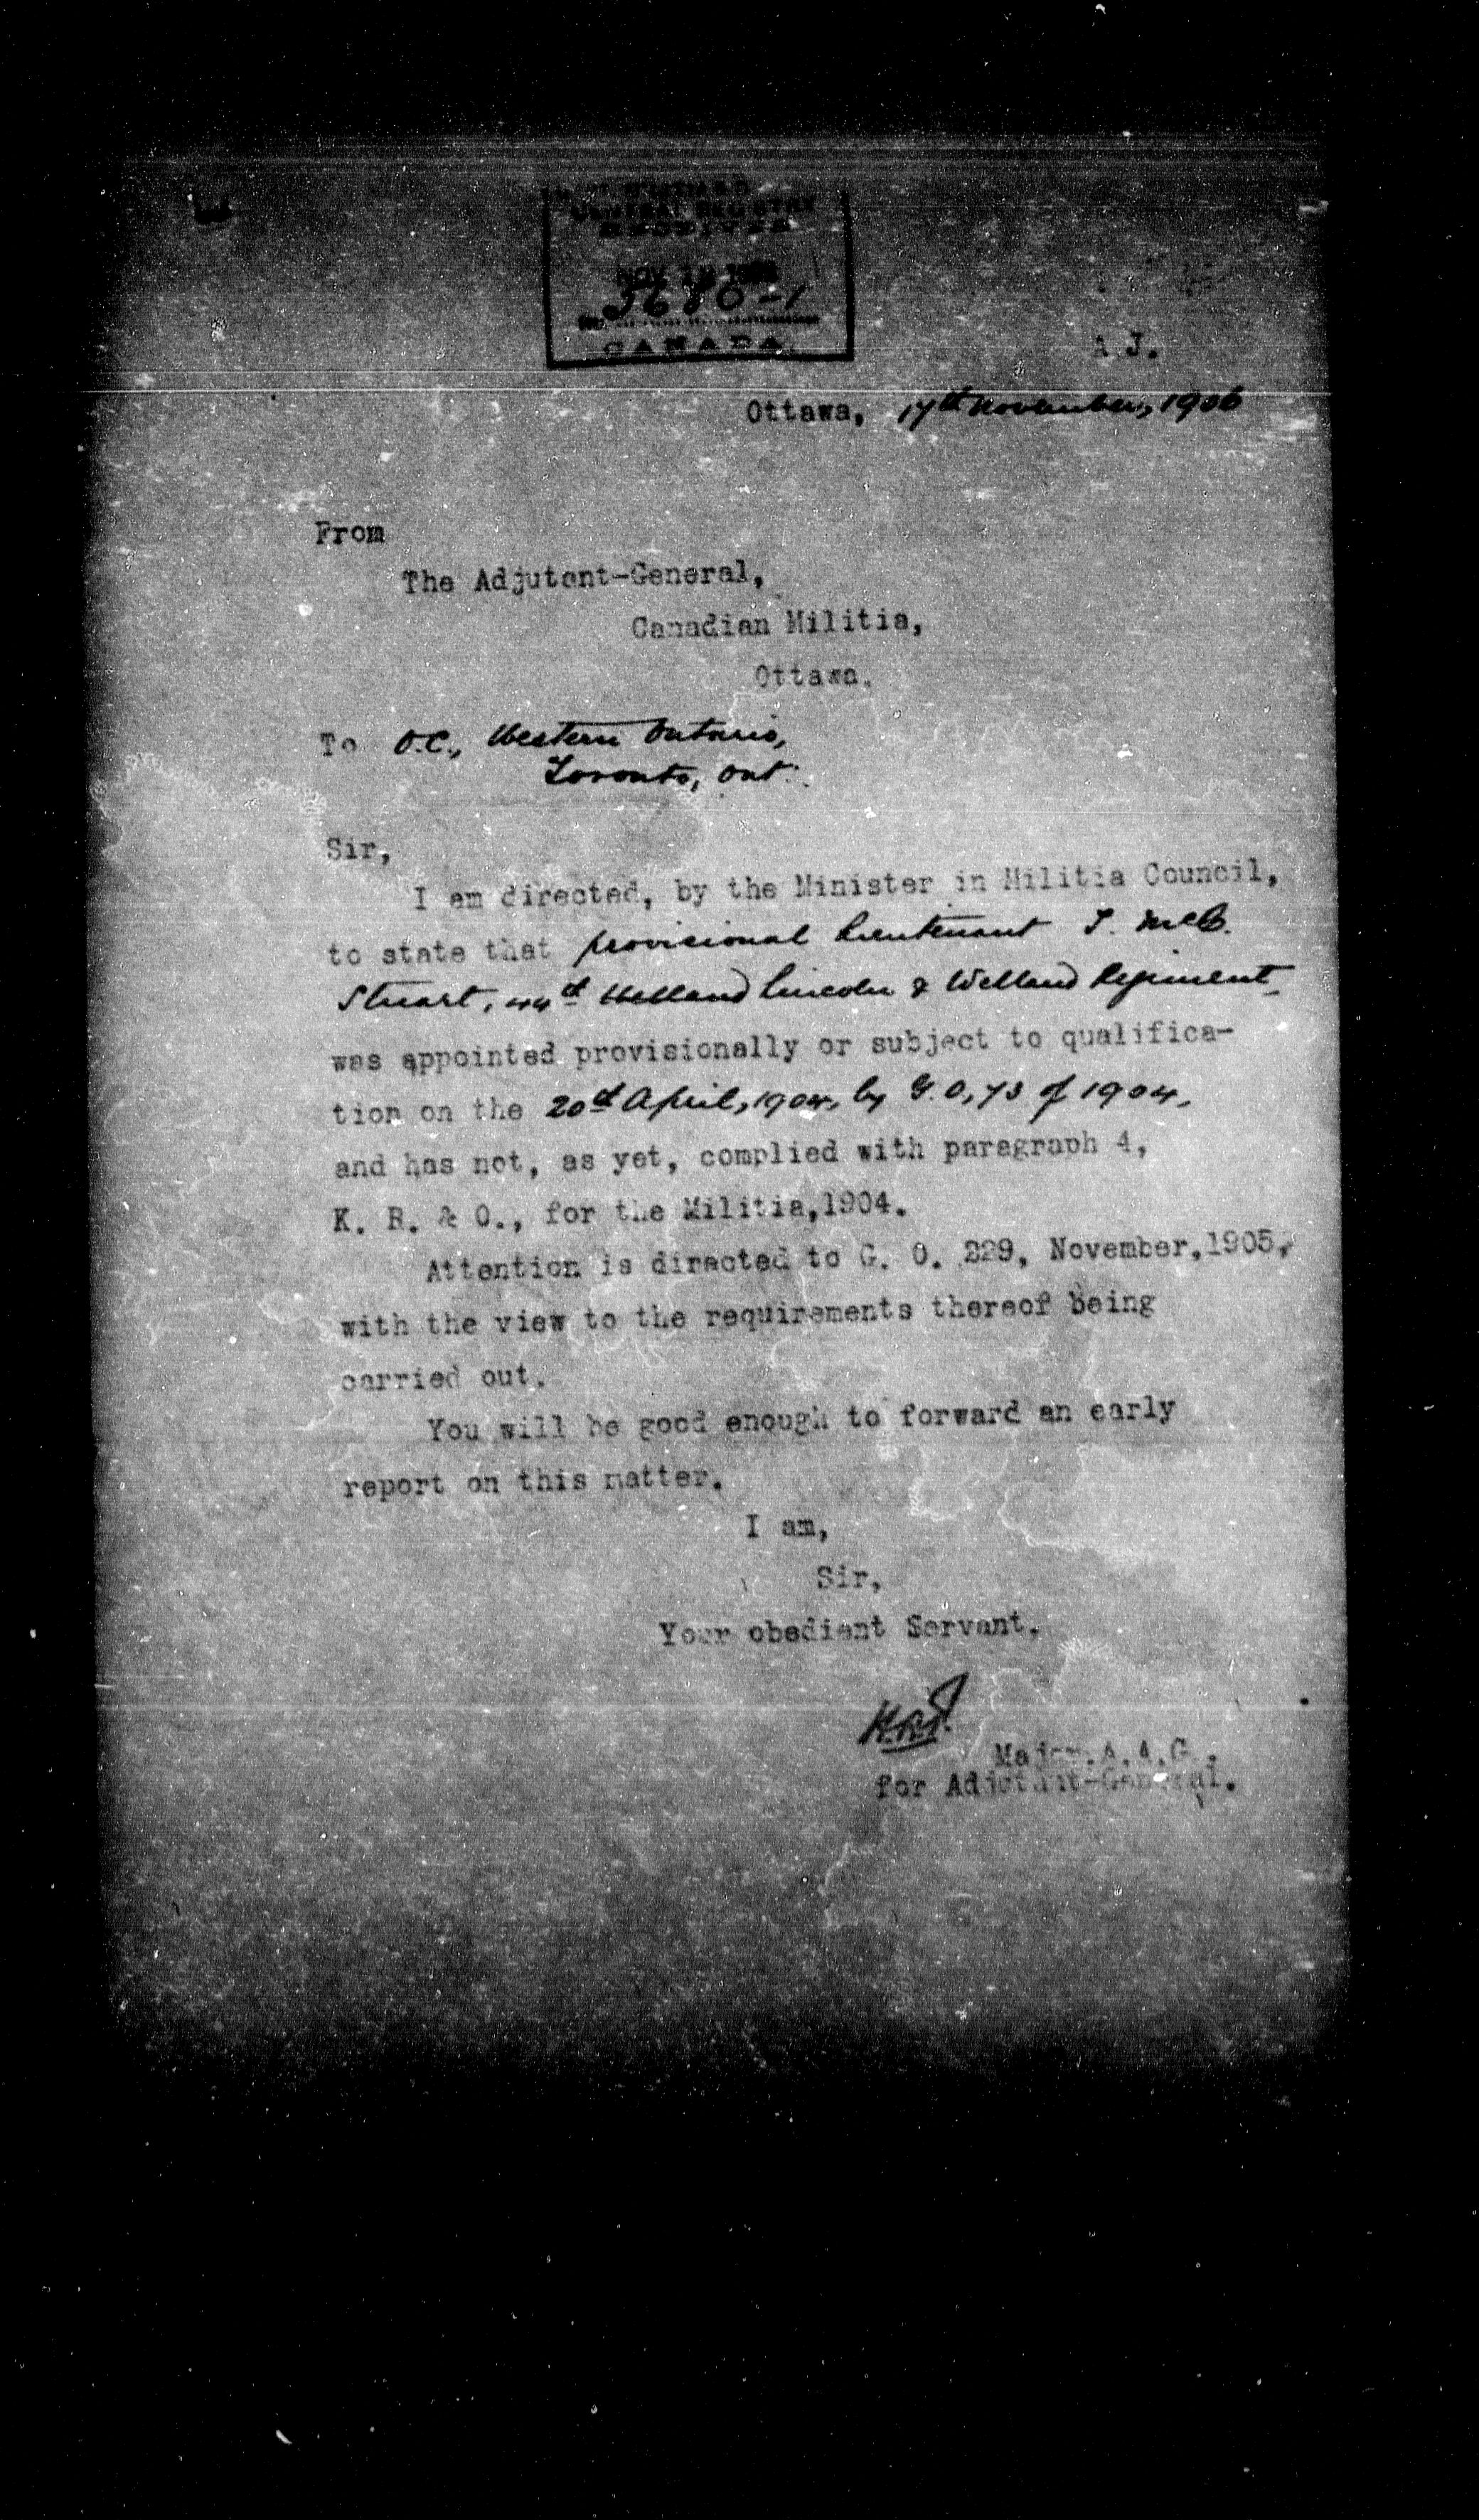 CENTRAL REGISTRY
3680-1
CANADA
A.J.
Ottawa, 17th November, 1906
From
The Adjutant-General,
Canadian Militia,
Ottawa.
To O.C., Western Ontario,
Toronto, Ont.
Sir,
I am directed, by the Minister in Militia Council,
to state that provisional Lieutenant J. McC.
Stuart, 44th Welland Lincoln & Welland Regiment
was appointed provisionally or subject to qualifica-
tion on the 20th April, 1904, by G.O. 73 of 1904,
and has not, as yet, complied with paragraph 4,
K. R. & O., for the Militia, 1904.
Attention is directed to G. O. 229, November, 1905,
with the view to the requirements thereof being
carried out.
You will be good enough to forward an early
report on this matter.
I am,
Sir,
Your obedient Servant.
Major. A.A.G.
for Adjutant-General.